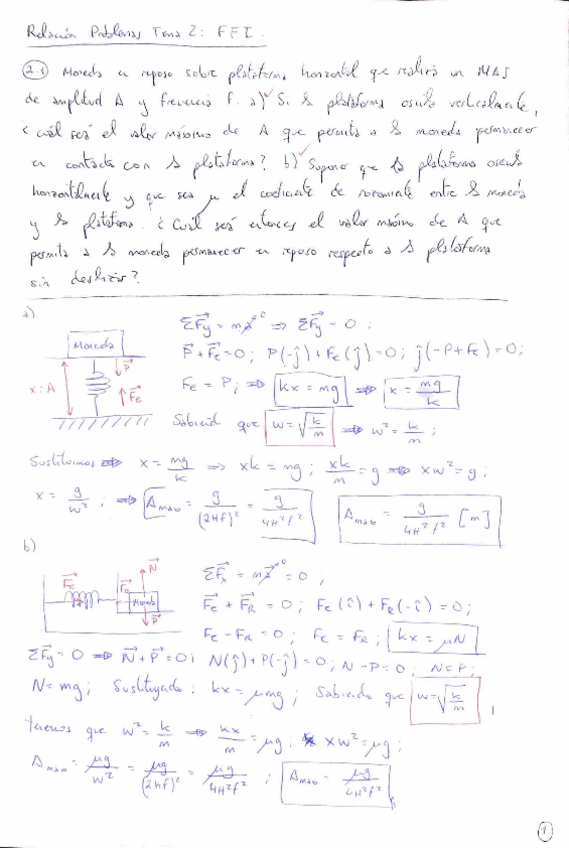 Relación Problemas Tema 2: FFI.
(2.1) Moneda en reposo sobre plataforma horizontal que realiza un MAS
de amplitud A y frecuencia f. a) Si la plataforma oscila verticalmente,
¿cuál será el valor máximo de A que permita a la moneda permanecer
en contacto con la plataforma? b) Suponer que la plataforma oscila
horizontalmente y que sea μ el coeficiente de rozamiento entre la moneda
y la plataforma. ¿Cuál será entonces el valor máximo de A que
permita a la moneda permanecer en reposo respecto a la plataforma
sin deslizar?
a)
Moneda
P⃗
x=A
F⃗e
ΣF⃗y = ma⃗⁰ ⇒ ΣF⃗y = 0 ;
P⃗ + F⃗e = 0 ; P(-ĵ) + Fe(ĵ) = 0 ; ĵ(-P + Fe) = 0 ;
Fe = P ; ⇒ kx = mg ⇒ x = mg/k
Sabiend que w = √(k/m) ⇒ w² = k/m ;
Sustituimos ⇒ x = mg/k ⇒ xk = mg ; xk/m = g ⇒ xw² = g ;
x = g/w² ; ⇒ Amax = g/(2πf)² = g/4π²f² Amax = g/4π²f² [m]
b)
N⃗
F⃗e
F⃗R
Moneda
P⃗
ΣF⃗x = ma⃗⁰ = 0 ;
F⃗e + F⃗R = 0 ; Fe(î) + FR(-î) = 0 ;
Fe - FR = 0 ; Fe = FR ; kx = μN
ΣF⃗y = 0 ⇒ N⃗ + P⃗ = 0 ; N(ĵ) + P(-ĵ) = 0 ; N - P = 0 ; N = P ;
N = mg ; Sustituyendo : kx = μmg ; Sabiendo que w = √(k/m) ,
tenemos que w² = k/m ⇒ kx/m = μg , xw² = μg ;
Amax = μg/w² = μg/(2πf)² = μg/4π²f² ; Amax = μg/4π²f²
1